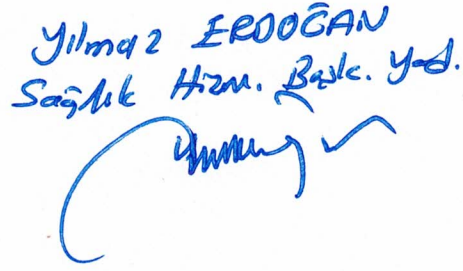 Yılmaz ERDOĞAN
Sağlık Hizm. Başk. Yrd.